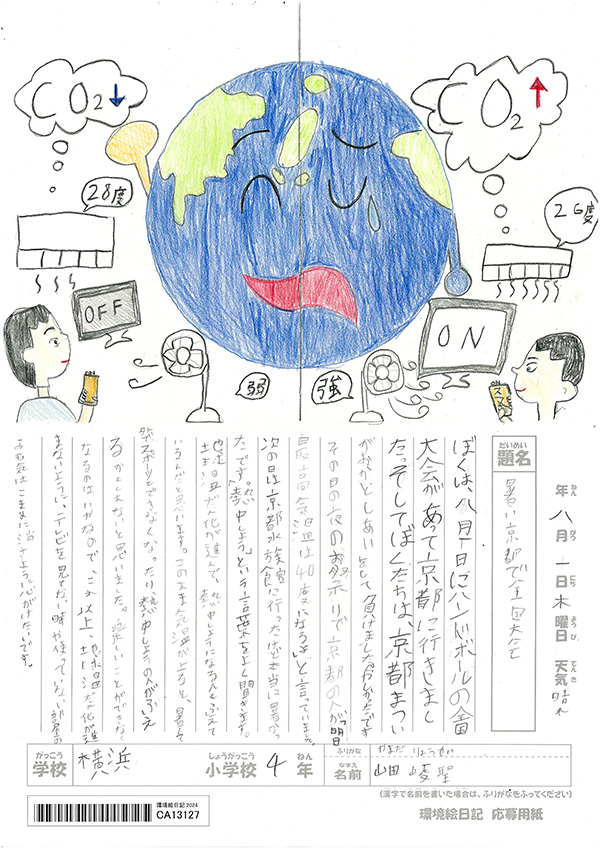 CO₂↓
CO₂↑
28度
26度
OFF
ON
弱
強
スマホ
だいめい
題名
暑い京都で全国大会
ねん
年
八月
がつ
一日
にち
木曜日
ようび
天気
てんき
晴れ
ぼくは、八月一日にハンドボールの全国
大会があって京都に行きまし
た。そしてぼくたちは、京都まつい
がおかとしあいをして負けましたがたのしかったです
その日の夜のお祭りで京都の人が「明日
最高気温は40度になるよ」と言っていま
次の日は京都水族館に行ったけど本当に暑かっ
たです。「熱中しょう」という言葉をよく聞きます。
地球温だん化が進んで、熱中しょうになる人もふえて
いるんだと思います。このまま気温が上がると、暑くて
スポーツもできなくなったり、熱中しょうの人がふえ
るかもしれないと思いました。楽しいことができなく
なるのはいやなので、これ以上、地球温だん化が進
まないように、テレビを見てない時や使っていない部屋の
電気はこまめに消すように心がけたいです。
がっこう
学校
横浜
しょうがっこう
小学校
4
ねん
年
ふりがな
やまだ りょうせい
なまえ
名前
山田 崚聖
(漢字で名前を書いた場合は、ふりがなをふってください)
環境絵日記2024
CA13127
環境絵日記 応募用紙